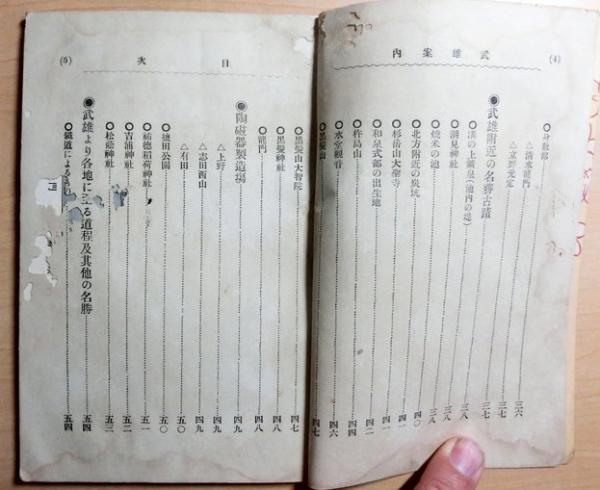 武雄案内
(4)
○身教館 三六
△清水龍門 三七
△立野元定 三七
◉武雄附近の名勝古蹟 三七
○溝の上鑛泉(池内の堤) 三八
○潮見神社 三八
○燒米の池 三八
○北方附近の炭坑 四〇
○杉岳山大聖寺 四一
○和泉式部の出生地 四二
○杵島山 四四
○水堂觀音 四六
○黑髮山 四七
目次
(5)
○黑髮山大智院 四七
○黑髮神社 四八
○龍門 四八
◉陶磁器製造場 四九
△上野 四九
△志田西山 四九
△有田 五〇
○徳田公園 五〇
○祐徳稻荷神社 五一
○吉浦神社 五二
○松蔭神社 五三
◉武雄より各地に至る道程及其他の名勝 五四
○鐵道による 五四